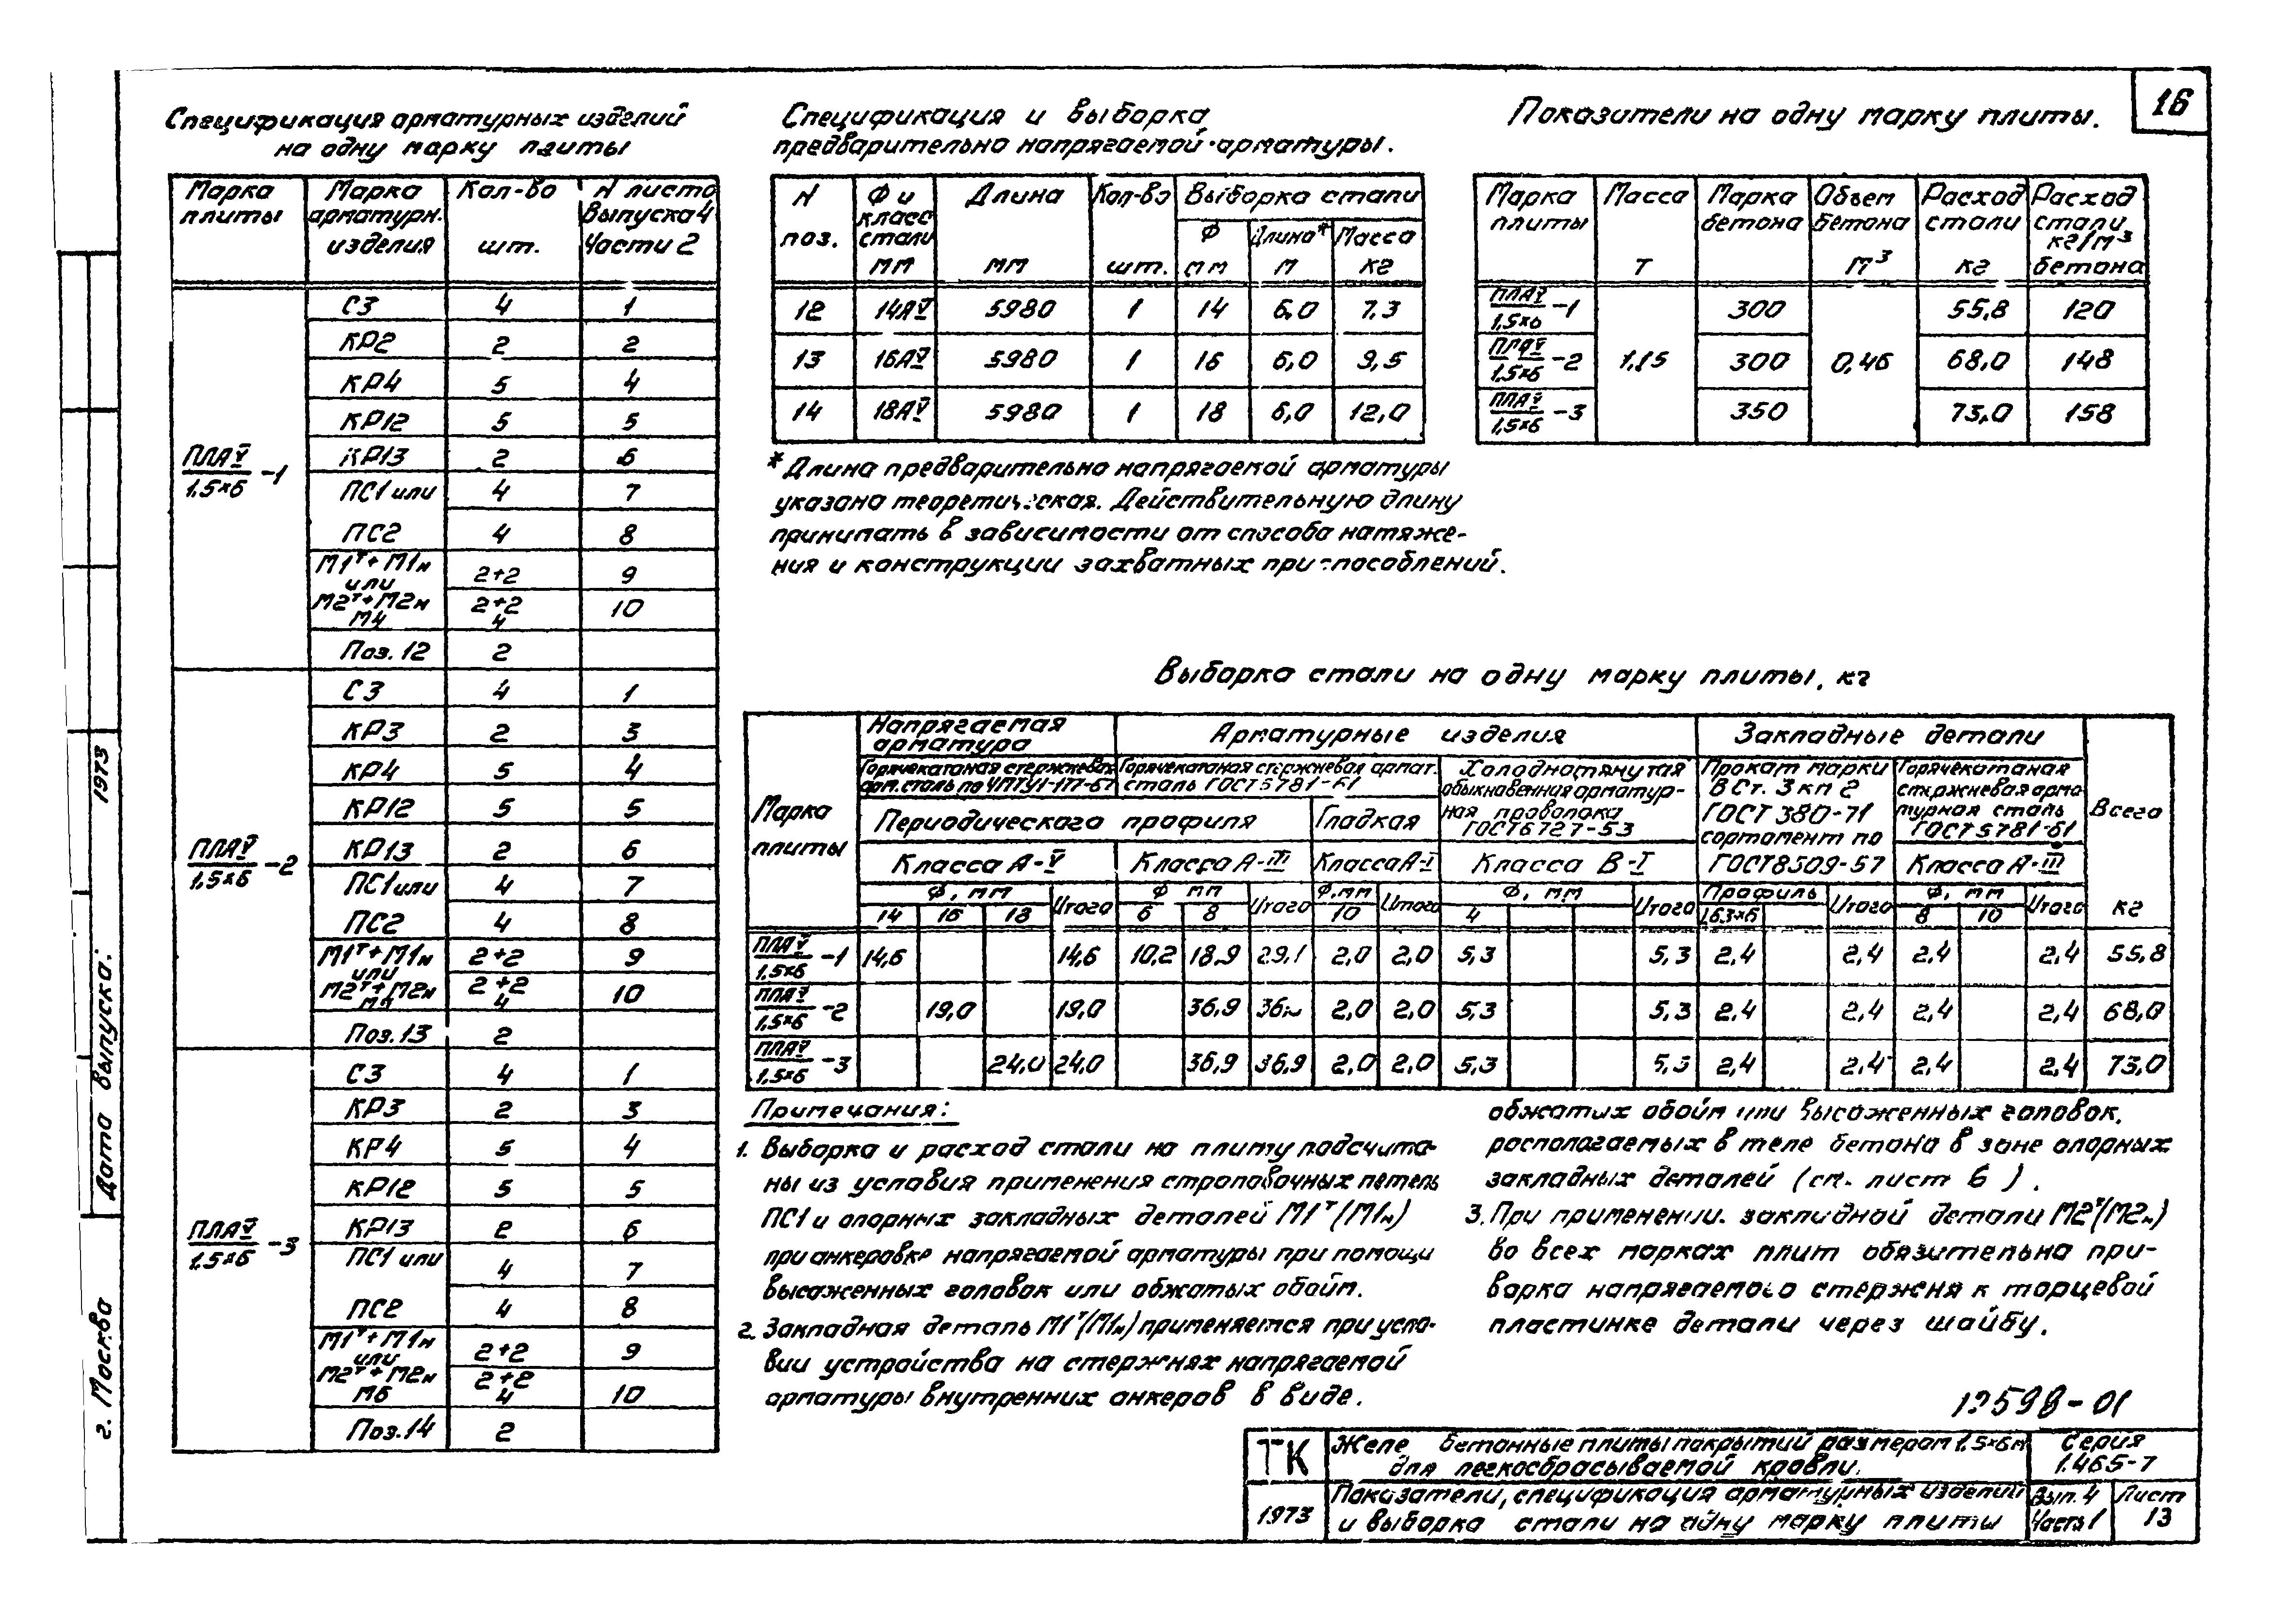 16
Спецификация арматурных изделий
на одну марку плиты
Марка плиты | Марка арматурн. изделия | Кол-во шт. | N листа Выпуска 4 Части 2
ПЛАV/1,5×6 -1 | С3 | 4 | 1
КР2 | 2 | 2
КР4 | 5 | 4
КР12 | 5 | 5
КР13 | 2 | 6
ПС1 или | 4 | 7
ПС2 | 4 | 8
М1т+М1н | 2+2 | 9
или
М2т+М2н | 2+2 | 10
М4 | 4
Поз. 12 | 2
ПЛАV/1,5×6 -2 | С3 | 4 | 1
КР3 | 2 | 3
КР4 | 5 | 4
КР12 | 5 | 5
КР13 | 2 | 6
ПС1 или | 4 | 7
ПС2 | 4 | 8
М1т+М1н | 2+2 | 9
или
М2т+М2н | 2+2 | 10
4
Поз. 13 | 2
ПЛАV/1,5×6 -3 | С3 | 4 | 1
КР3 | 2 | 3
КР4 | 5 | 4
КР12 | 5 | 5
КР13 | 2 | 6
ПС1 или | 4 | 7
ПС2 | 4 | 8
М1т+М1н | 2+2 | 9
или
М2т+М2н | 2+2 | 10
М6 | 4
Поз. 14 | 2
Спецификация и выборка
предварительно напрягаемой арматуры.
N поз. | Ф и класс стали мм | Длина мм | Кол-во шт. | Выборка стали
Ф мм | Длина* м | Масса кг
12 | 14АV | 5980 | 1 | 14 | 6,0 | 7,3
13 | 16АV | 5980 | 1 | 16 | 6,0 | 9,5
14 | 18АV | 5980 | 1 | 18 | 6,0 | 12,0
* Длина предварительно напрягаемой арматуры
указана теоретическая. Действительную длину
принимать в зависимости от способа натяже-
ния и конструкции захватных приспособлений.
Показатели на одну марку плиты.
Марка плиты | Масса т | Марка бетона | Объем бетона м³ | Расход стали кг | Расход стали кг/м³ бетона
ПЛАV/1,5×6 -1 | 1,15 | 300 | 0,46 | 55,8 | 120
ПЛАV/1,5×6 -2 | 300 | 68,0 | 148
ПЛАV/1,5×6 -3 | 350 | 73,0 | 158
Выборка стали на одну марку плиты, кг
Марка плиты | Напрягаемая арматура | Арматурные изделия | Закладные детали | Всего кг
Горячекатаная стержневая арм. сталь по ЧМТУ1-177-67 | Горячекатаная стержневая армат. сталь ГОСТ 5781-61 | Холоднотянутая обыкновенная арматурная проволока ГОСТ 6727-53 | Прокат марки ВСт. 3 кп 2 ГОСТ 380-71 сортамент по ГОСТ 8509-57 | Горячекатаная стержневая арматурная сталь ГОСТ 5781-61
Периодического профиля | Гладкая
Класса А-V | Класса А-III | Класса А-I | Класса В-I | Класса А-III
Ф, мм | Итого | Ф мм | Итого | Ф, мм | Итого | Ф, мм | Итого | Профиль | Итого | Ф, мм | Итого
14 | 16 | 18 | 6 | 8 | 10 | 4 | L63×6 | 8 | 10
ПЛАV/1,5×6 -1 | 14,6 | 14,6 | 10,2 | 18,9 | 29,1 | 2,0 | 2,0 | 5,3 | 5,3 | 2,4 | 2,4 | 2,4 | 2,4 | 55,8
ПЛАV/1,5×6 -2 | 19,0 | 19,0 | 36,9 | 2,0 | 2,0 | 5,3 | 5,3 | 2,4 | 2,4 | 2,4 | 2,4 | 68,0
ПЛАV/1,5×6 -3 | 24,0 | 24,0 | 36,9 | 36,9 | 2,0 | 2,0 | 5,3 | 5,3 | 2,4 | 2,4 | 2,4 | 2,4 | 73,0
Примечания:
1. Выборка и расход стали на плиту подсчита-
ны из условия применения строповочных петель
ПС1 и опорных закладных деталей М1т (М1н)
при анкеровке напрягаемой арматуры при помощи
высаженных головок или обжатых обойм.
2. Закладная деталь М1т (М1н) применяется при усло-
вии устройства на стержнях напрягаемой
арматуры внутренних анкеров в виде.
обжатых обойм или высаженных головок,
располагаемых в теле бетона в зоне опорных
закладных деталей (см. лист 6).
3. При применении закладной детали М2т (М2н)
во всех марках плит обязательна при-
варка напрягаемого стержня к торцевой
пластинке детали через шайбу.
598-01
ТК | Желе бетонные плиты покрытий размером 1,5×6м
для легкосбрасываемой кровли. | Серия 1.465-7
1973 | Показатели, спецификация арматурных изделий
и выборка стали на одну марку плиты | Вып. 4 Часть 1 | Лист 13
г. Москва Дата выпуска: 1973